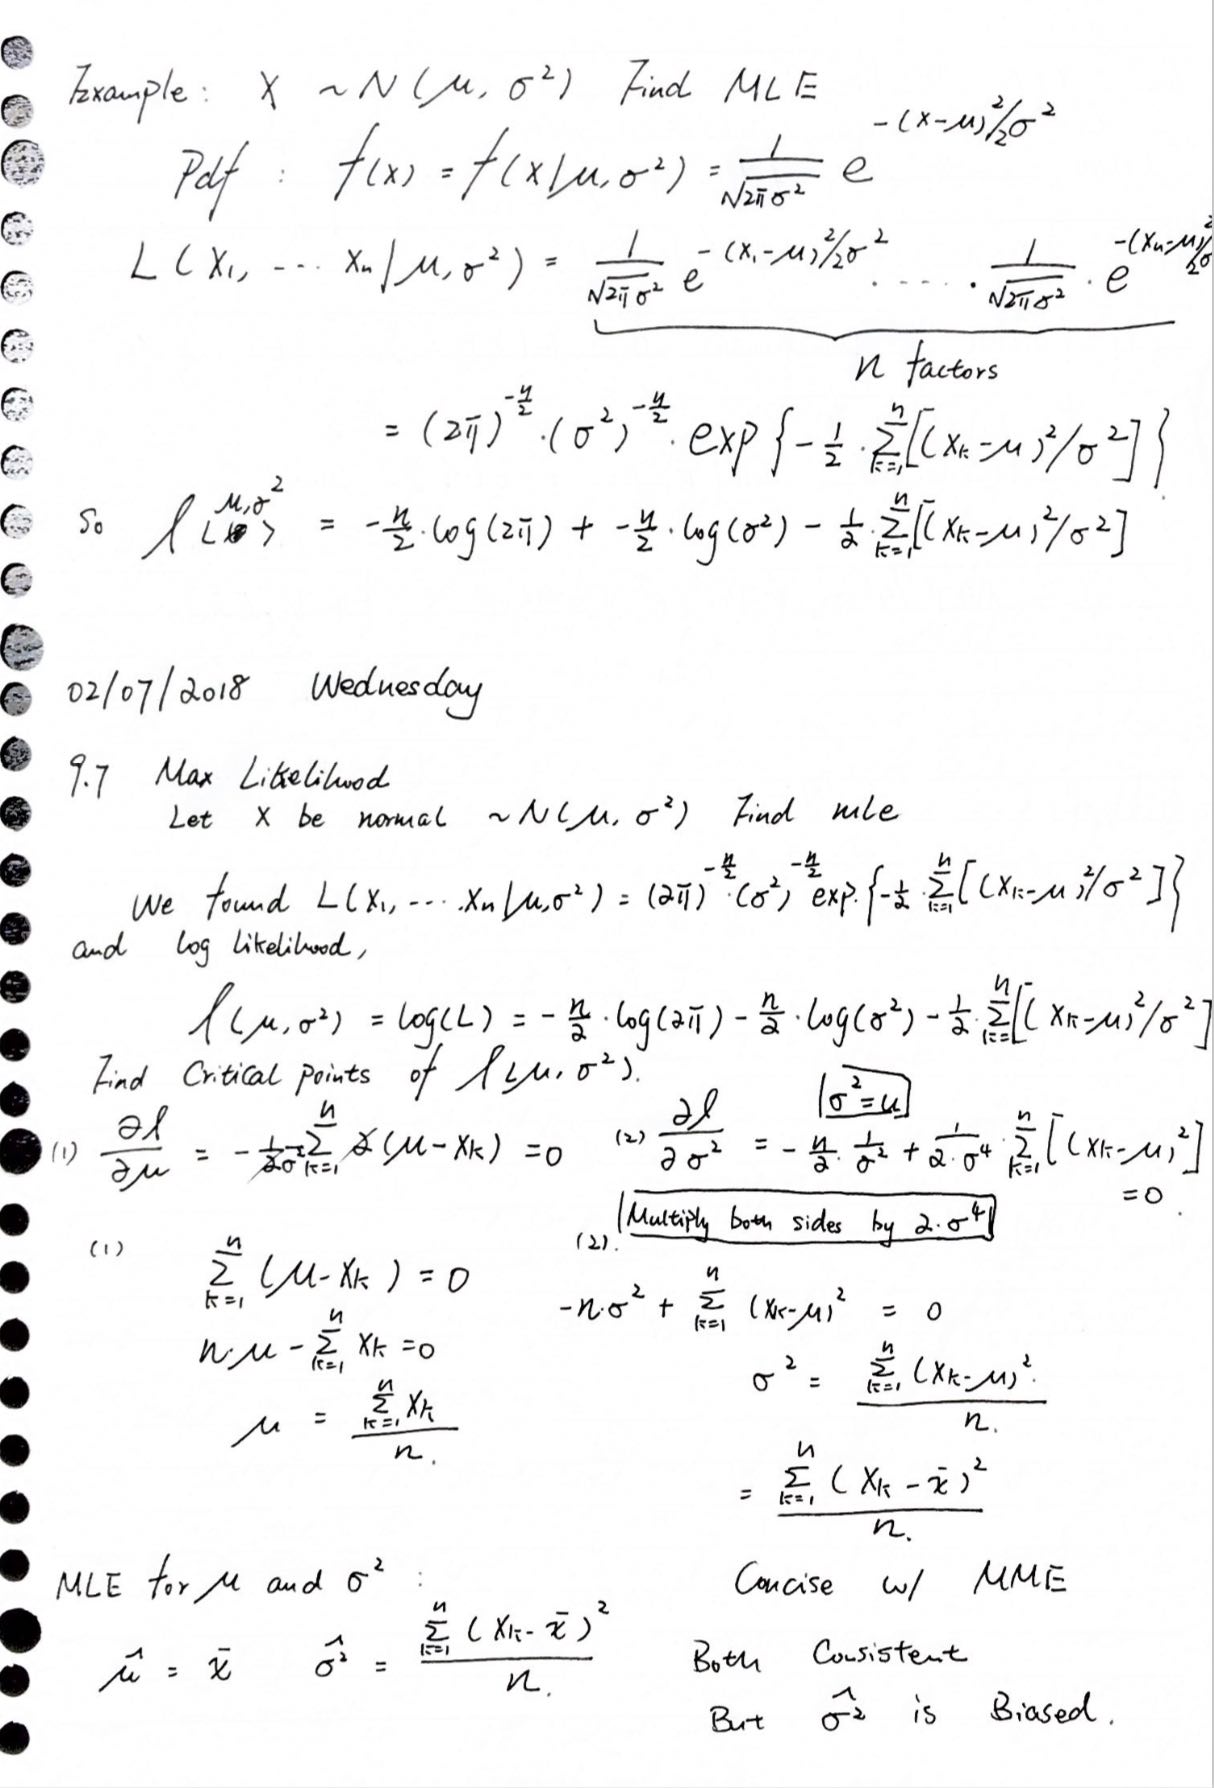 Example: X ~ N(μ, σ²) Find MLE
Pdf : f(x) = f(x|μ, σ²) = 1/√2πσ² e^-(x-μ)²/2σ²
L(X₁, ... Xn | μ, σ²) = 1/√2πσ² e^-(X₁-μ)²/2σ² ..... 1/√2πσ² · e^-(Xn-μ)²/2σ²
n factors
= (2π)^-n/2 · (σ²)^-n/2 · exp{-1/2 · Σ_{k=1}^n [(Xk-μ)²/σ²]}
So l(μ,σ²) = -n/2 · log(2π) + -n/2 · log(σ²) - 1/2 · Σ_{k=1}^n [(Xk-μ)²/σ²]
02/07/2018 Wednesday
9.7 Max Likelihood
Let X be normal ~N(μ, σ²) Find mle
We found L(X₁, .... Xn | μ,σ²) = (2π)^-n/2 · (σ²)^-n/2 exp. {-1/2 · Σ_{k=1}^n [(Xk-μ)²/σ²]}
and log likelihood,
l(μ, σ²) = log(L) = -n/2 · log(2π) - n/2 · log(σ²) - 1/2 · Σ_{k=1}^n [(Xk-μ)²/σ²]
Find Critical points of l(μ, σ²).
σ² = u
(1) ∂l/∂μ = -1/2σ² Σ_{k=1}^n 2(μ-Xk) = 0
(2) ∂l/∂σ² = -n/2 · 1/σ² + 1/2·σ⁴ · Σ_{k=1}^n [(Xk-μ)²]
= 0.
Multiply both sides by 2·σ⁴
(1) Σ_{k=1}^n (μ-Xk) = 0
n·μ - Σ_{k=1}^n Xk = 0
μ = Σ_{k=1}^n Xk / n.
(2). -n·σ² + Σ_{k=1}^n (Xk-μ)² = 0
σ² = Σ_{k=1}^n (Xk-μ)² / n.
= Σ_{k=1}^n (Xk - x̄)² / n.
MLE for μ and σ² :
μ̂ = x̄ σ̂² = Σ_{k=1}^n (Xk - x̄)² / n.
Concise w/ MME
Both Consistent
But σ̂² is Biased.